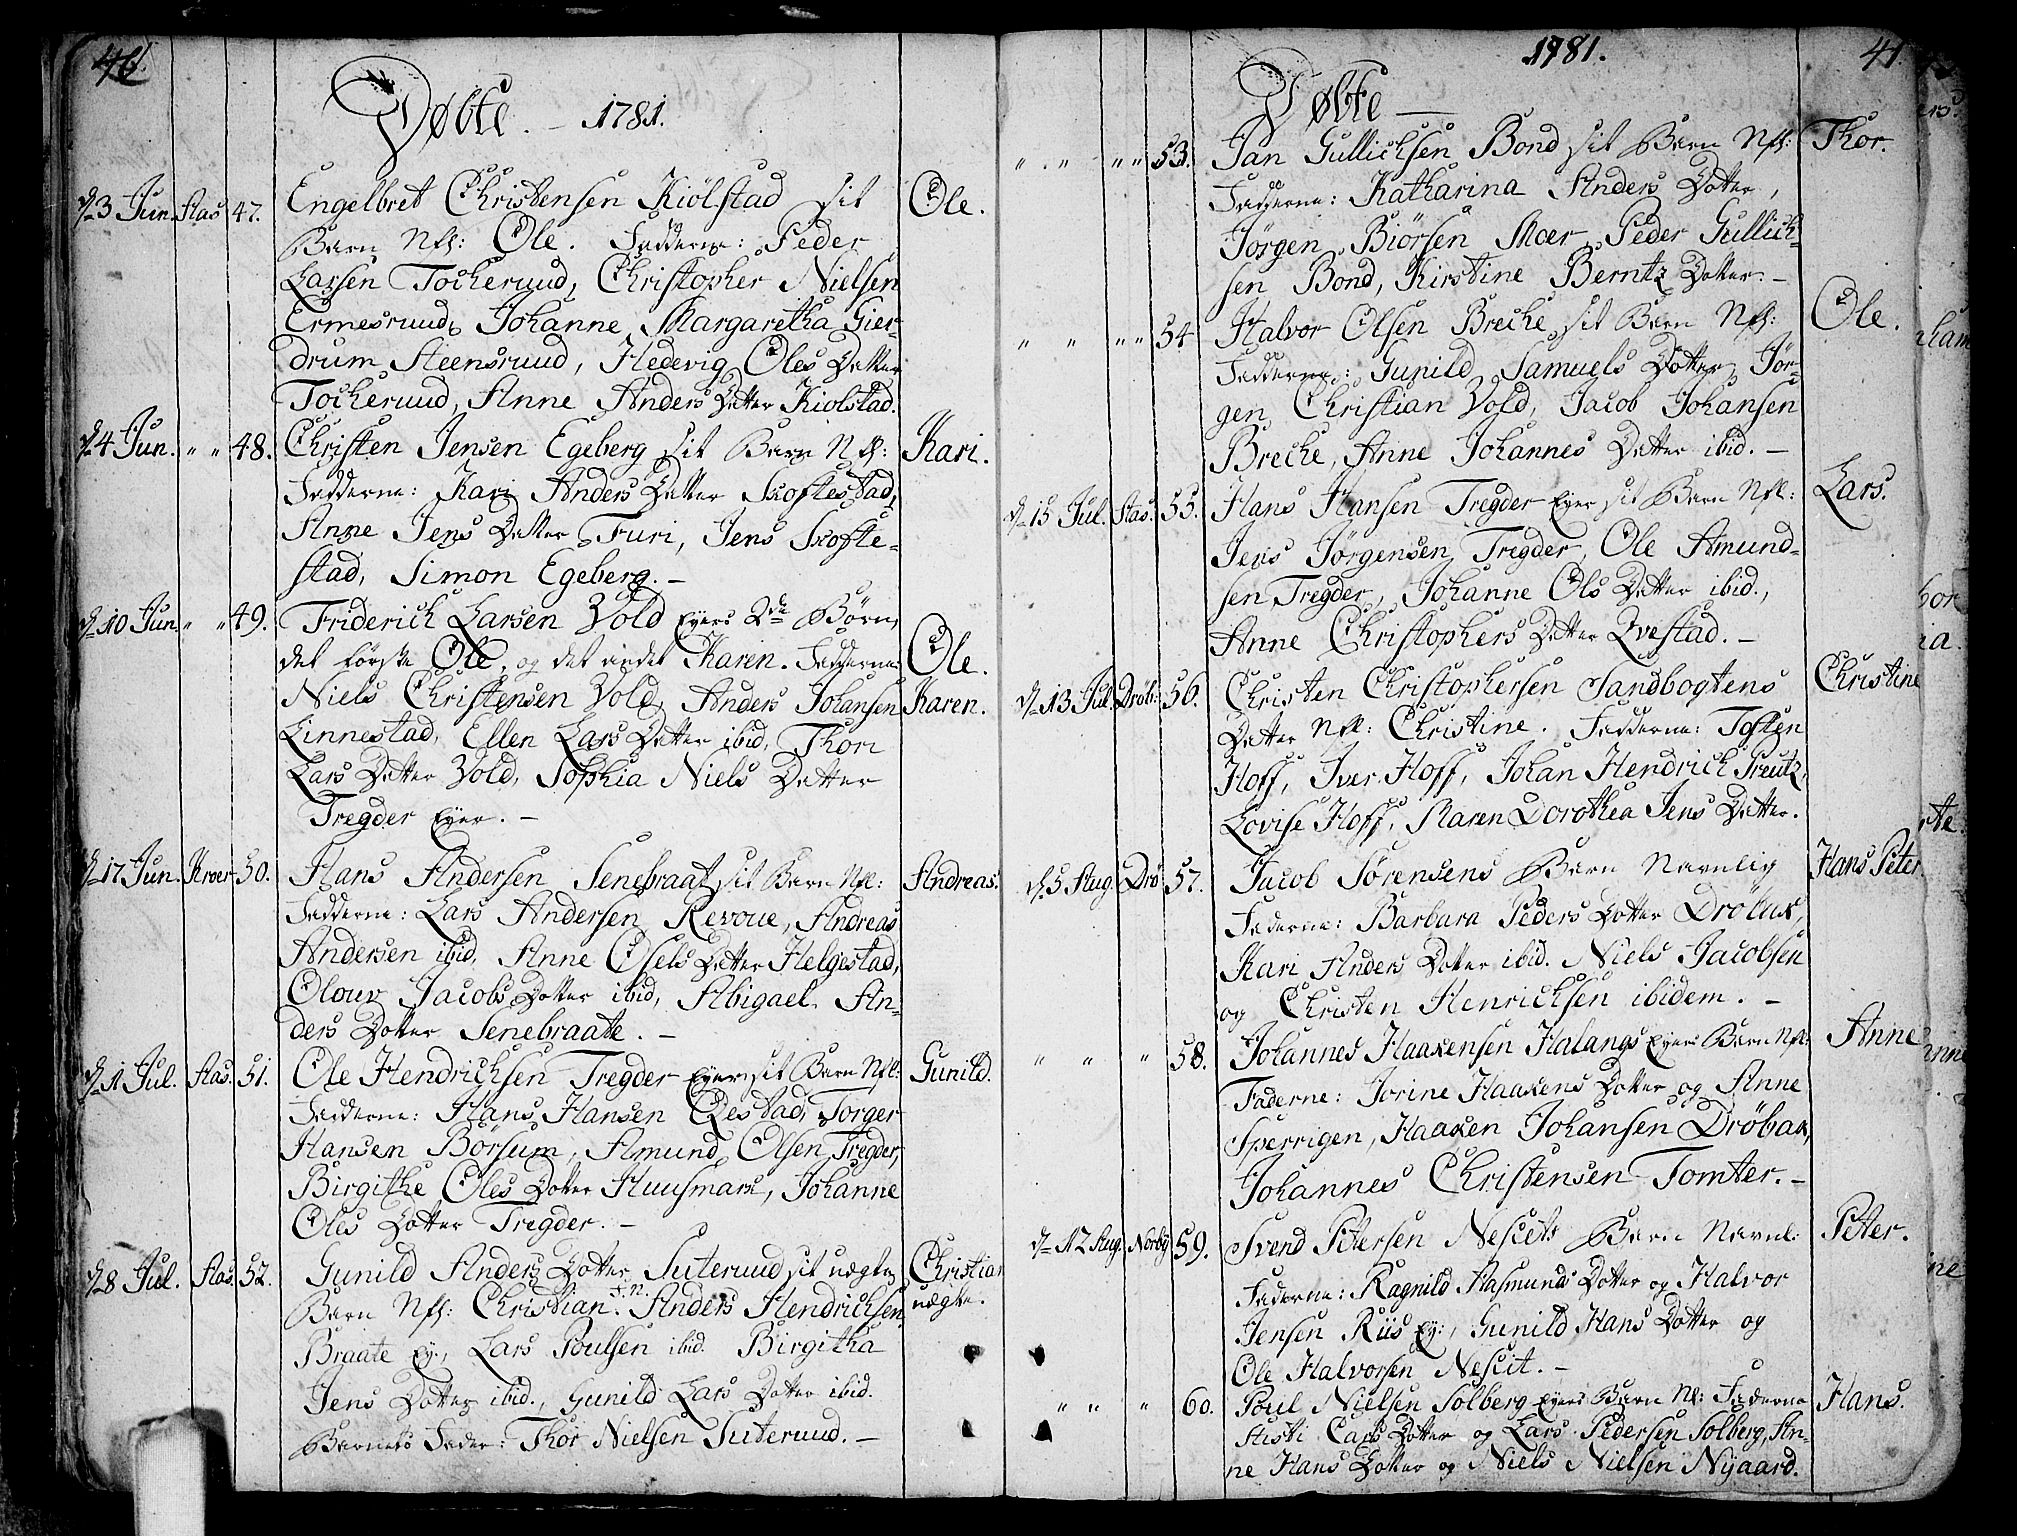 46.
Døbte. – 1781.
d. 3 Jun. Aas 47. Engelbret Christensen Kiölstad sit Ole.
Barn Nfl: Ole. Fadderne: Peder
Larsen Tocheruud, Christopher Nielsen
Ermesruud, Johanne Margaretha Gier-
drum Steensruud, Hedevig Oles Datter
Tocheruud, Anne Anders Datter Kiolstad.
d. 4 Jun. " " 48. Christen Jensen Egeberg sit Barn Nfl: Kari.
Fadderne: Kari Anders Datter Skoftestad,
Anne Jens Datter Furi, Jens Skofte-
stad, Simon Egeberg. –
d. 10 Jun. " " 49. Friderich Larsen Vold Eyers 2de Børn,
det første Ole, og det andet Karen. Fadderne: Ole.
Niels Christensen Vold, Anders Johansen Karen.
Linnestad, Ellen Lars Datter ibid, Thori
Lars Datter Vold, Sophia Niels Datter
Tregder Eyer. –
d. 17 Jun. Kroer 50. Hans Andersen Senebraat sit Barn Nfl: Andreas.
Fadderne: Lars Andersen Revoue, Andreas
Andersen ibid, Anne Osels Datter Helgestad,
Olouv Jacobs Dotter ibid, Abigael An-
ders Dotter Senebraate. –
d. 1 Jul. Aas. 51. Ole Hendrichsen Tregder Eyer sit Barn Nfl: Gunild.
Fadderne: Hans Hansen Qvestad, Torger
Hansen Börsum, Amund Olsen Tregder,
Birgithe Oles Dotter Huusmark, Johanne
Oles Dotter Tregder. –
d. 8 Jul. Aas. 52. Gunild Anders Dotter Suteruud sit uægte Christian
Barn Nfl: Christian. F.N. Anders Hendrichsen uægte.
Braate Ey:, Lars Poulsen ibid. Birgitha
Jens Dotter ibid., Gunild Lars Dotter ibid.
Barnets Fader: Thor Nielsen Suteruud. –
1781. 47
Døbte –
" " " " 53. Jan Gullichsen Bond sit Barn Nfl: Thor.
Fadderne: Katharina Anders Dotter,
Jörgen Biörsen Moer, Peder Gullich-
sen Bond, Kirstine Berntz Dotter. –
" " " " 54 Halvor Olsen Breche sit Barn Nfl: Ole.
Fadderne: Gunild Samuels Dotter, Jör-
gen Christian Vold, Jacob Johansen
Breche, Anne Johannes Datter ibid. –
d. 15 Jul. Aas. 55. Hans Hansen Tregder Eyer sit Barn Nfl: Lars.
Jens Jörgensen Tregder, Ole Amund-
sen Tregder, Johanne Ols Datter ibid.,
Anne Christophers Datter Qvestad. –
d. 13 Jul. Dröb: 56. Christen Christophersen Sandbogtens Christine
Datter Nfl: Christine. Fadderne: Tosten
Hoff, Iver Hoff, Johan Hendrich Preutz,
Lovise Hoff, Maren Dorothea Jens Datter.
d. 5 Aug. Drö 57. Jacob Sörensens Barn Navnlig Hans Peter.
Faderne: Barbara Peders Dotter Dröbak,
Kari Anders Dotter ibid. Niels Jacobsen
og Christen Henrichsen ibidem. –
" " " 58. Johannes Haaxensen Halangs Eyers Barn Nfl: Anne
Faderne: Jorine Haaxens Dotter og Anne
Sperrigen, Haaxen Johansen Dröbak,
Johannes Christensen Tomter. –
d. 12 Aug. Norby 59. Svend Petersen Neseets Barn Navnl: Peter.
Faderne: Ragnild Aasmunds Dotter og Halvor
Jensen Riis Ey:, Gunild Hans Dotter og
Ole Halvorsen Neseit. –
" " " 60. Poul Nielsen Solberg Eyers Barn Nl: Faderne Hans.
Kisti Lars Dotter og Lars Pedersen Solberg, An-
ne Hans Dotter og Niels Nielsen Nyaard.